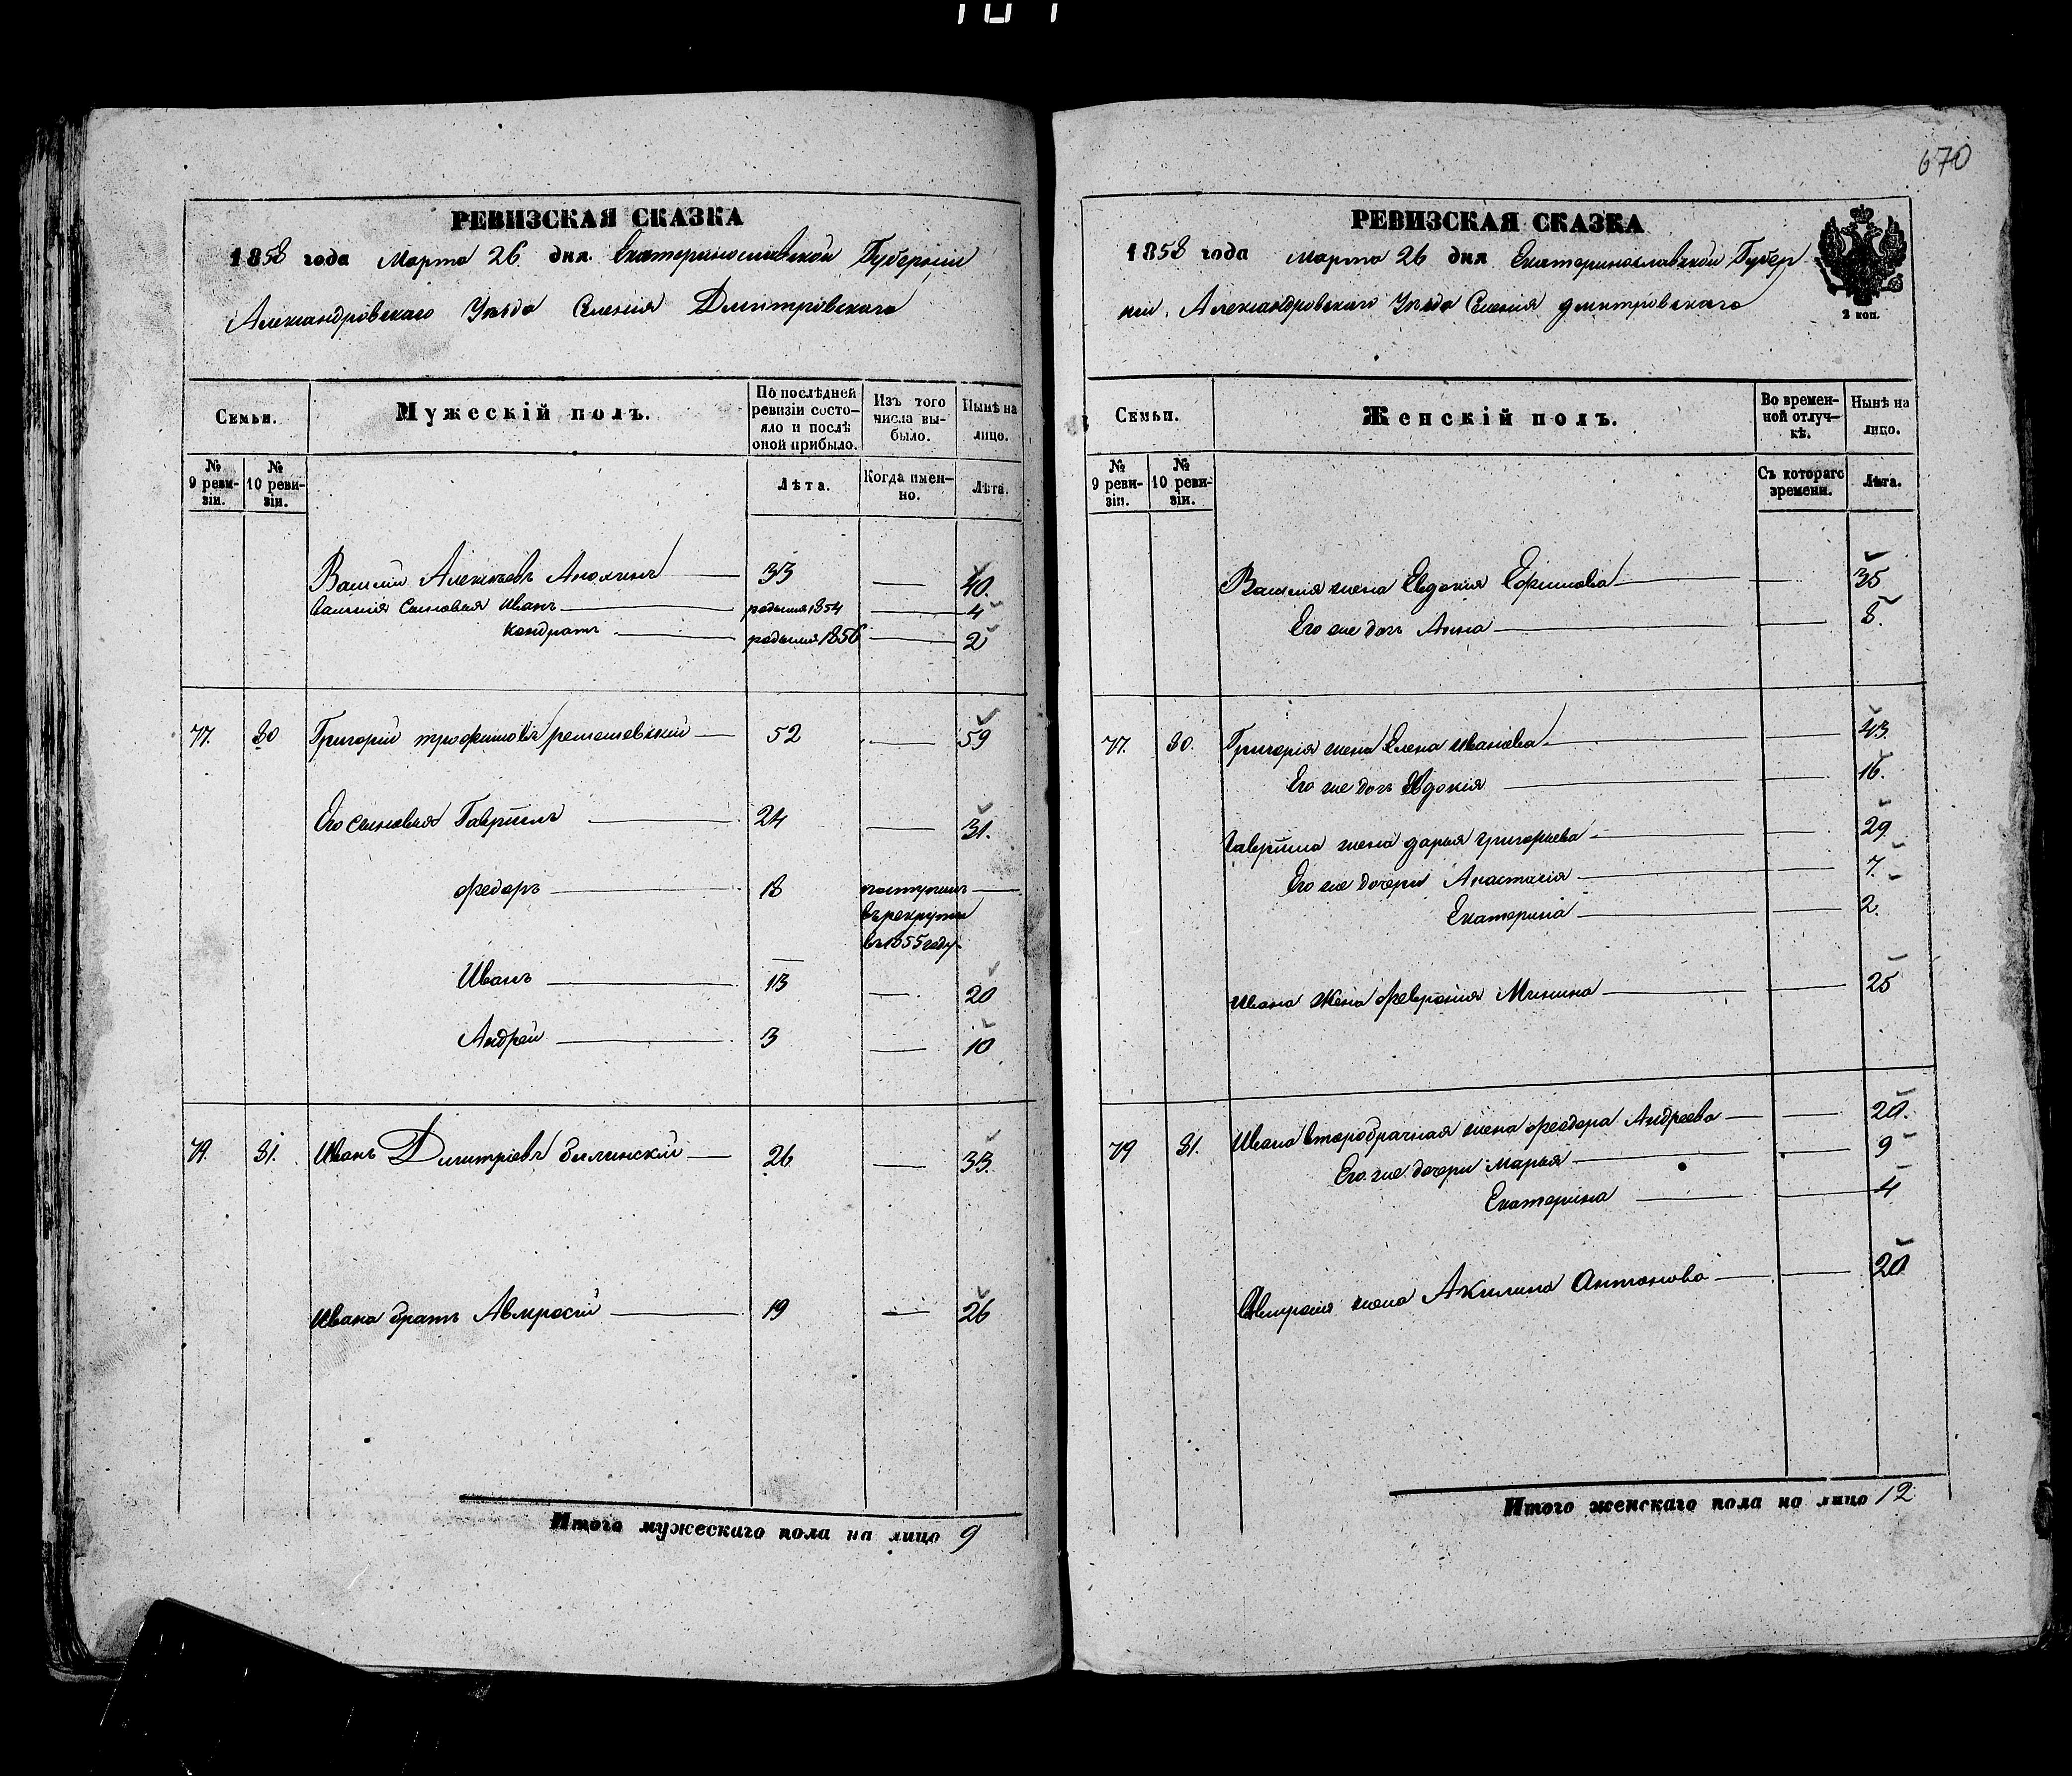 670
РЕВИЗСКАЯ СКАЗКА
1858 года Марта 26 дня Екатеринославской Губерніи
Александровскаго Уѣзда Селенія Дмитровскаго
Семьи.
Мужескій полъ.
По послѣдней ревизіи состояло и послѣ оной прибыло.
Изъ того числа выбыло.
Нынѣ на лицо.
№ 9 ревизіи.
№ 10 ревизіи.
Лѣта.
Когда именно.
Лѣта.
Василій Алексѣевъ 33 40.
Василія Сыновья Иванъ родился 1854 4
Кондратъ родился 1856 2
77. 30 Григорій трофимовъ 52 59
Его Сыновья Гавріилъ 24 31.
Федоръ 18 поступилъ
въ рекруты
въ 1855 году
Иванъ 13 20
Андрей 3 10
79. 31. Иванъ Димитріевъ 26 33.
Ивана братъ Амвросій 19 26
Итого мужескаго пола на лицо 9
РЕВИЗСКАЯ СКАЗКА
1858 года марта 26 дня Екатеринославской Губер
ніи, Александровскаго Уѣзда Селенія дмитровскаго
2 коп.
Семьи.
Женскій полъ.
Во временной отлучкѣ.
Нынѣ на лицо.
№ 9 ревизіи.
№ 10 ревизіи.
Съ котораго времени.
Лѣта.
Василія жена Евдокія Ефимова 35
Его же дочь Анна 8.
77. 30. Григорія жена Елена иванова 43.
Его же дочь Евдокія 16.
Гавріила жена дарья григорьева 29
Его же дочери Анастасія 7.
Екатерина 2.
Ивана жена Февронія Минина 25
79 31. Ивана второбрачная жена Феодора Андреева 20.
Его же дочери Марья 9
Екатерина 4
Амвросія жена Акилина Антонова 20
Итого женскаго пола на лицо 12